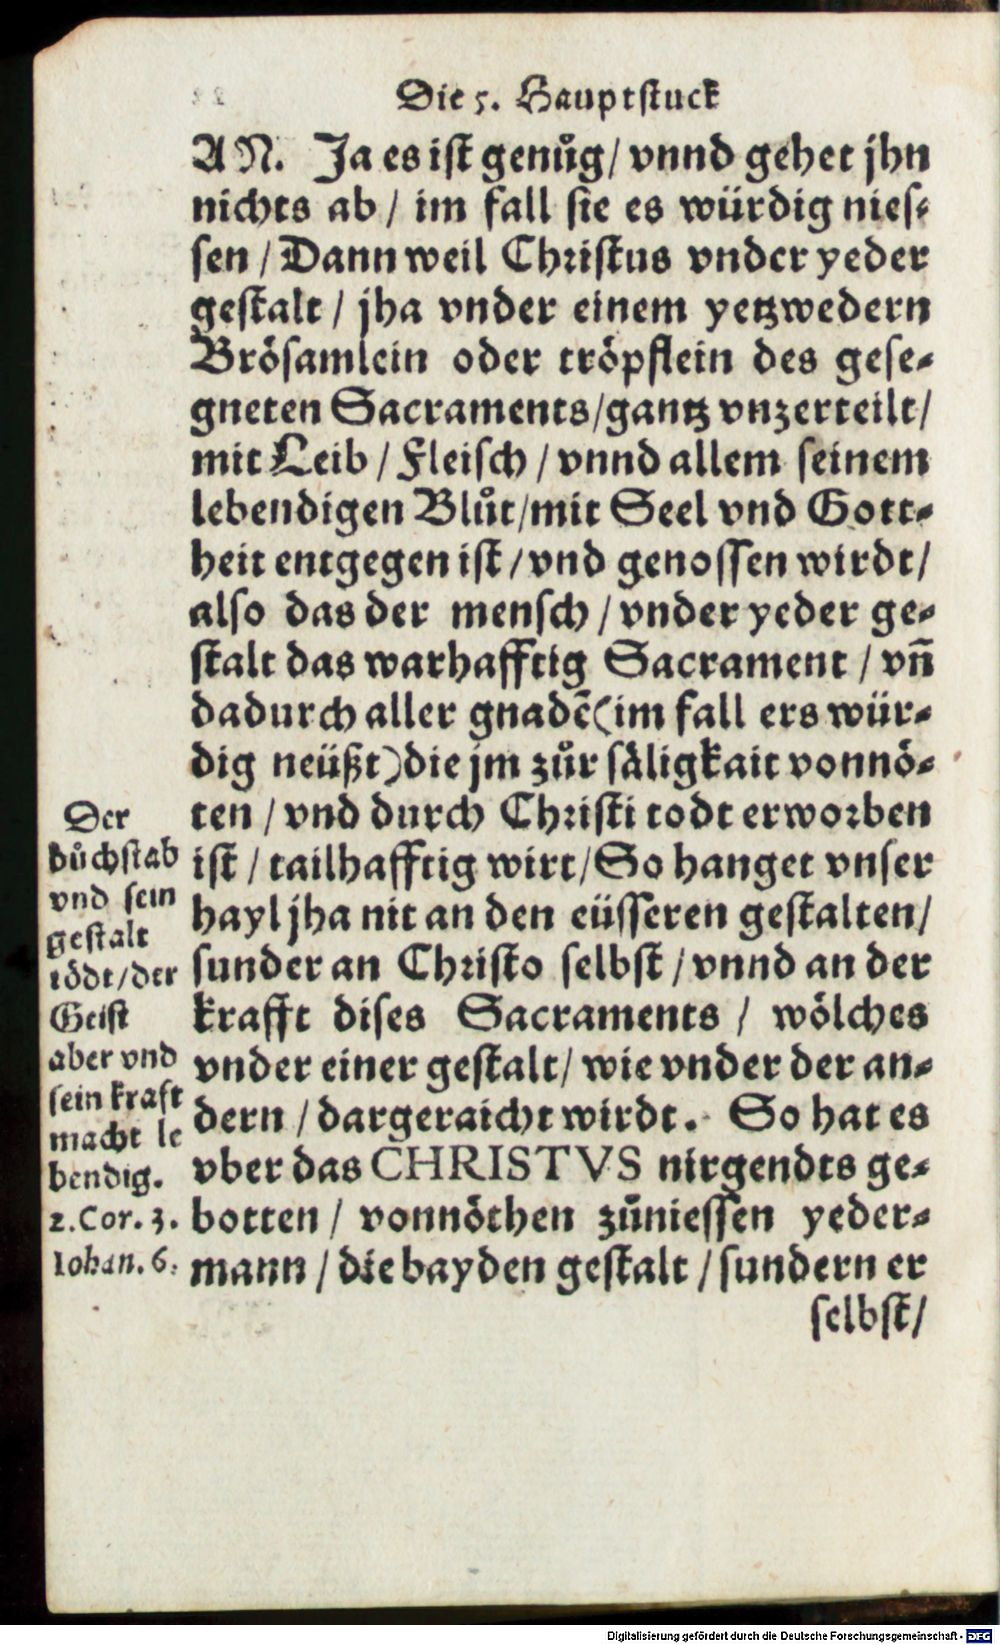 Die 5. Hauptstuck
AN. Ja es ist genůg/ vnnd gehet jhn
nichts ab/ im fall sie es würdig nies-
sen/ Dann weil Christus vnder yeder
gestalt/ jha vnder einem yetzwedern
Brösamlein oder tröpflein des gese-
gneten Sacraments/gantz vnzerteilt/
mit Leib/ Fleisch/ vnnd allem seinem
lebendigen Blůt/mit Seel vnd Gott-
heit entgegen ist/vnd genossen wirdt/
also das der mensch/ vnder yeder ge-
stalt das warhafftig Sacrament/ vñ
dadurch aller gnadẽ(im fall ers wür-
dig neüßt)die jm zůr säligkait vonnö-
ten/ vnd durch Christi todt erworben
ist/ tailhafftig wirt/So hanget vnser
hayl jha nit an den eüsseren gestalten/
sunder an Christo selbst/vnnd an der
krafft dises Sacraments/ wölches
vnder einer gestalt/ wie vnder der an-
dern/ dargeraicht wirdt. So hat es
vber das CHRISTVS nirgendts ge-
botten/ vonnöthen zůniessen yeder-
mann/ die bayden gestalt/ sundern er
selbst/
Der
bůchstab
vnd sein
gestalt
tödt/der
Geist
aber vnd
sein kraft
macht le
bendig.
2.Cor. 3.
Iohan. 6.
Digitalisierung gefördert durch die Deutsche Forschungsgemeinschaft - DFG